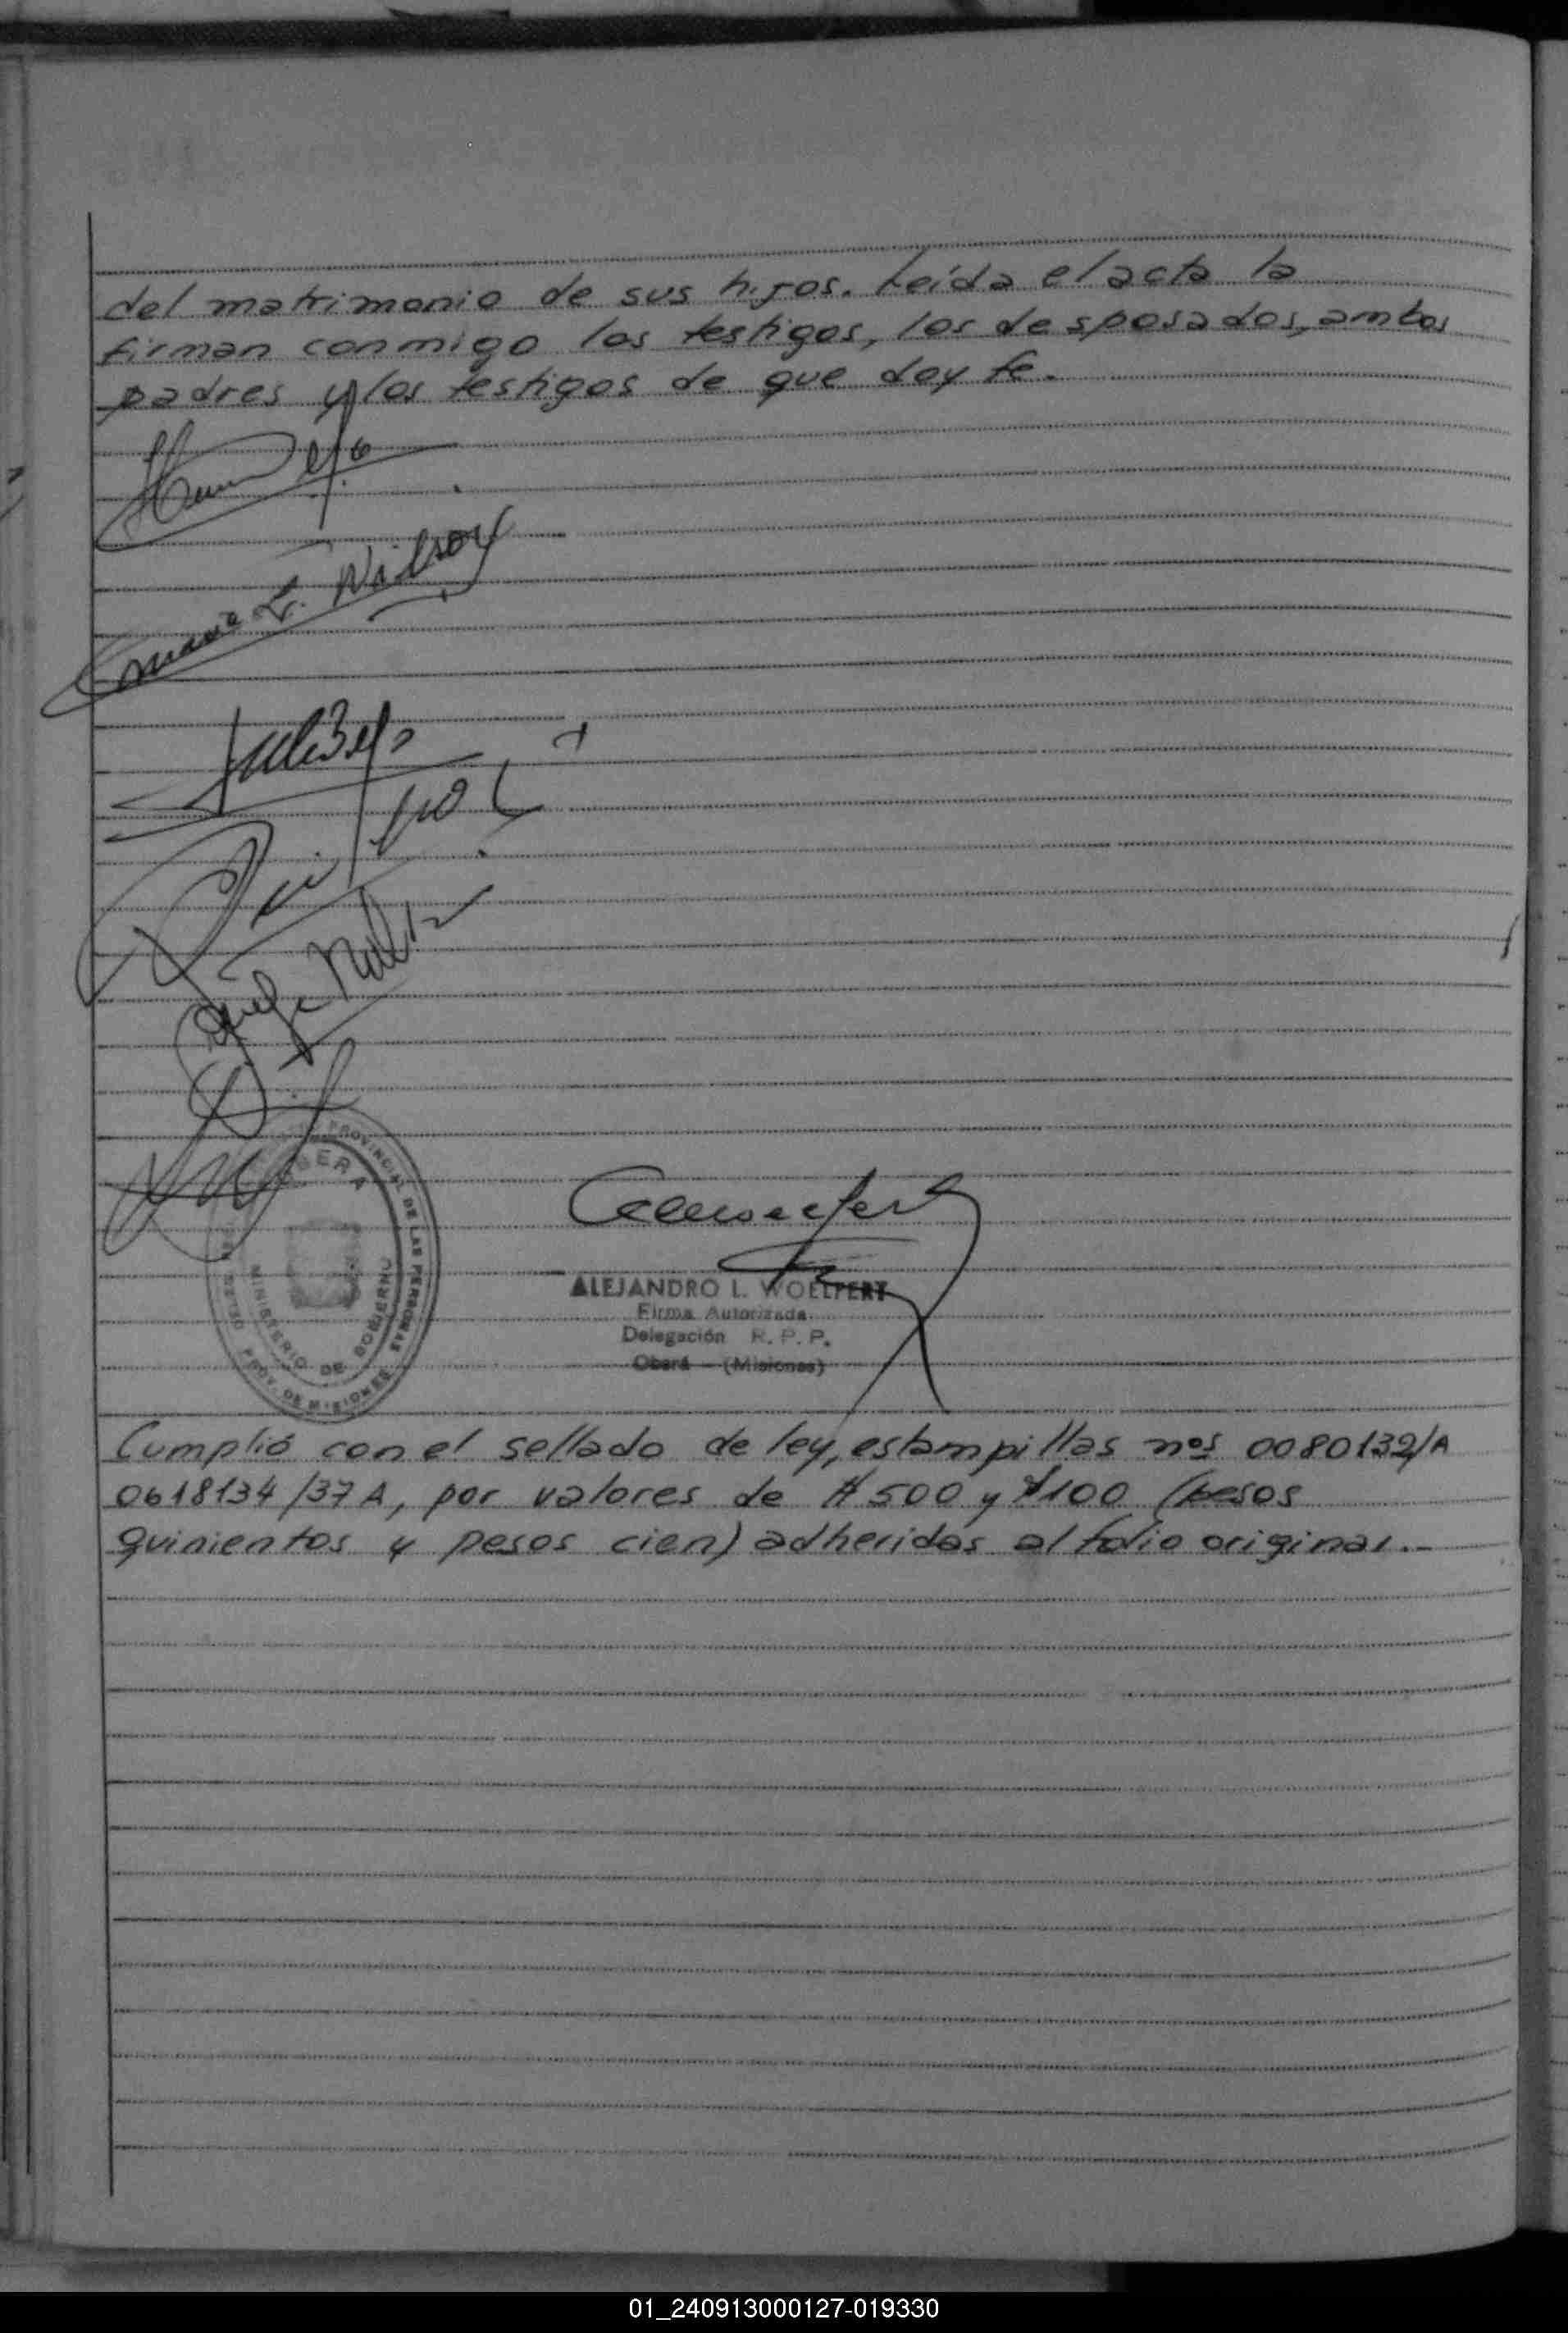 del matrimonio de sus hijos. Leída el acta la
firman conmigo los testigos, los desposados, ambos
padres y los testigos de que doy fe.
L. Nilson
OBERA
PROVINCIAL DE LAS PERSONAS
MINISTERIO DE GOBIERNO
PROV. DE MISIONES
ALEJANDRO L. WOELPERT
Firma Autorizada
Delegación R. P. P.
Oberá - (Misiones)
Cumplió con el sellado de ley, estampillas nos 0080132/A
0618134/37A, por valores de $500 y $100 (pesos
quinientos y pesos cien) adheridas al folio original.-
01_240913000127-019330